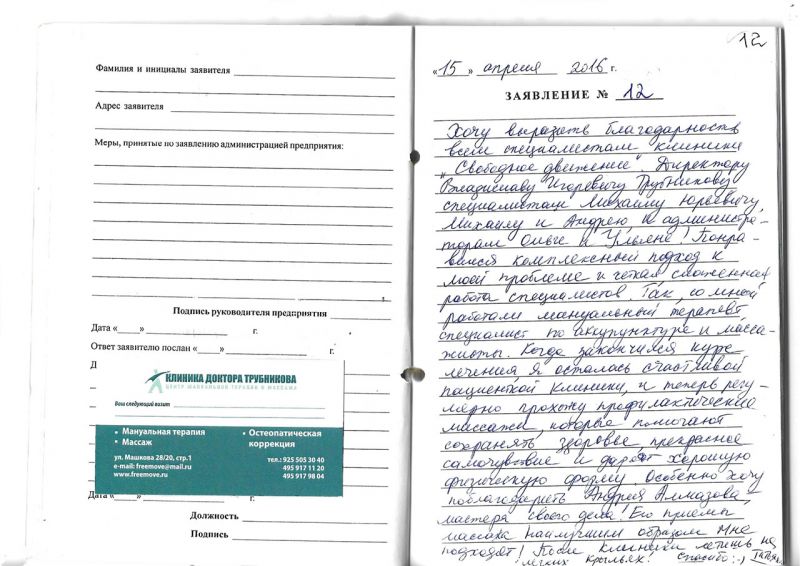 Фамилия и инициалы заявителя
Адрес заявителя
Меры, принятые по заявлению администрацией предприятия:
Подпись руководителя предприятия
Дата «    »    г.
Ответ заявителю послан «    »    г.
Д
КЛИНИКА ДОКТОРА ТРУБНИКОВА
ЦЕНТР МАНУАЛЬНОЙ ТЕРАПИИ И МАССАЖА
Ваш следующий визит
• Мануальная терапия
• Массаж
• Остеопатическая
коррекция
ул. Машкова 28/20, стр.1
e-mail: freemove@mail.ru
www.freemove.ru
тел.: 925 505 30 40
495 917 11 20
495 917 98 04
Дата «    »    г.
Должность
Подпись
12
«15» апреля 2016 г.
ЗАЯВЛЕНИЕ № 12
Хочу выразить благодарность
всем специалистам клиники
„Свободное движение". Директору
Владиславу Игоревичу Трубникову,
специалистам Михаилу Юрьевичу,
Михаилу и Андрею, и администра-
торам Ольге и Ульяне! Понра-
вился комплексный подход к
моей проблеме и чёткая слаженная
работа специалистов. Так, со мной
работали мануальный терапевт,
специалист по аккупунктуре и масса-
жисты. Когда закончился курс
лечения я осталась счастливой
пациенткой клиники, и теперь регу-
лярно прохожу профилактические
массажи, которые помогают
сохранять здоровье, прекрасное
самочувствие и дарят хорошую
физическую форму. Особенно хочу
поблагодарить Андрея Алмазова –
мастера своего дела! Его приёмы
массажа наилучшим образом мне
подходят! После клиники летишь на
лёгких крыльях! Спасибо :-)